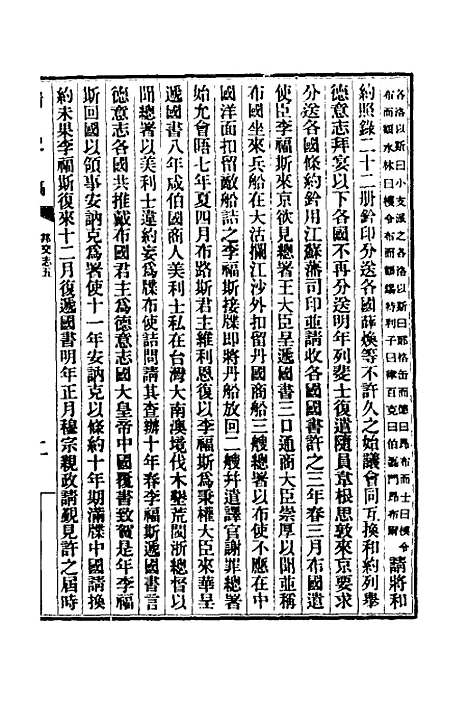 各洛以斯曰小支派之各洛以斯曰耶格缶而德曰昂布而士曰模令
布而額水林曰模令布而額錫特利子曰律百克曰伯磊門昂布爾
請將和
約照錄二十二册鈐印分送各國薛煥等不許久之始議會同互換和約列舉
德意志拜宴以下各國不再分送明年列斐士復遣隨員韋根思敦來京要求
分送各國條約鈐用江蘇藩司印並請收各國國書許之三年春三月布國遣
使臣李福斯來京欲見總署王大臣呈遞國書三口通商大臣崇厚以聞並稱
布國坐來兵船在大沽攔江沙外扣留丹國商船三艘總署以布使不應在中
國洋面扣留敵船詰之李福斯接牒卽將丹船放回二艘幷遣譯官謝罪總署
始允會晤七年夏四月布路斯君主維利恩復以李福斯爲秉權大臣來華呈
遞國書八年咸伯國商人美利士私在台灣大南澳境伐木墾荒閩浙總督以
聞總署以美利士違約妄爲牒布使詰問請其查辦十年春李福斯遞國書言
德意志各國共推戴布國君主爲德意志國大皇帝中國覆書致賀是年李福
斯回國以領事安訥克爲署使十一年安訥克以條約十年期滿牒中國請換
約未果李福斯復來十二月復遞國書明年正月穆宗親政請覲見許之屆時
邦交志五
二